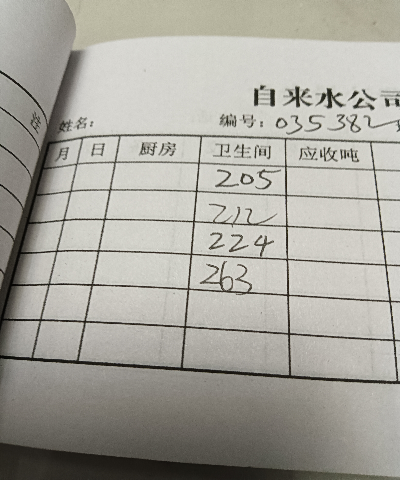 自来水公司
姓名: 编号: 035382
月 日 厨房 卫生间 应收吨
205
212
224
263